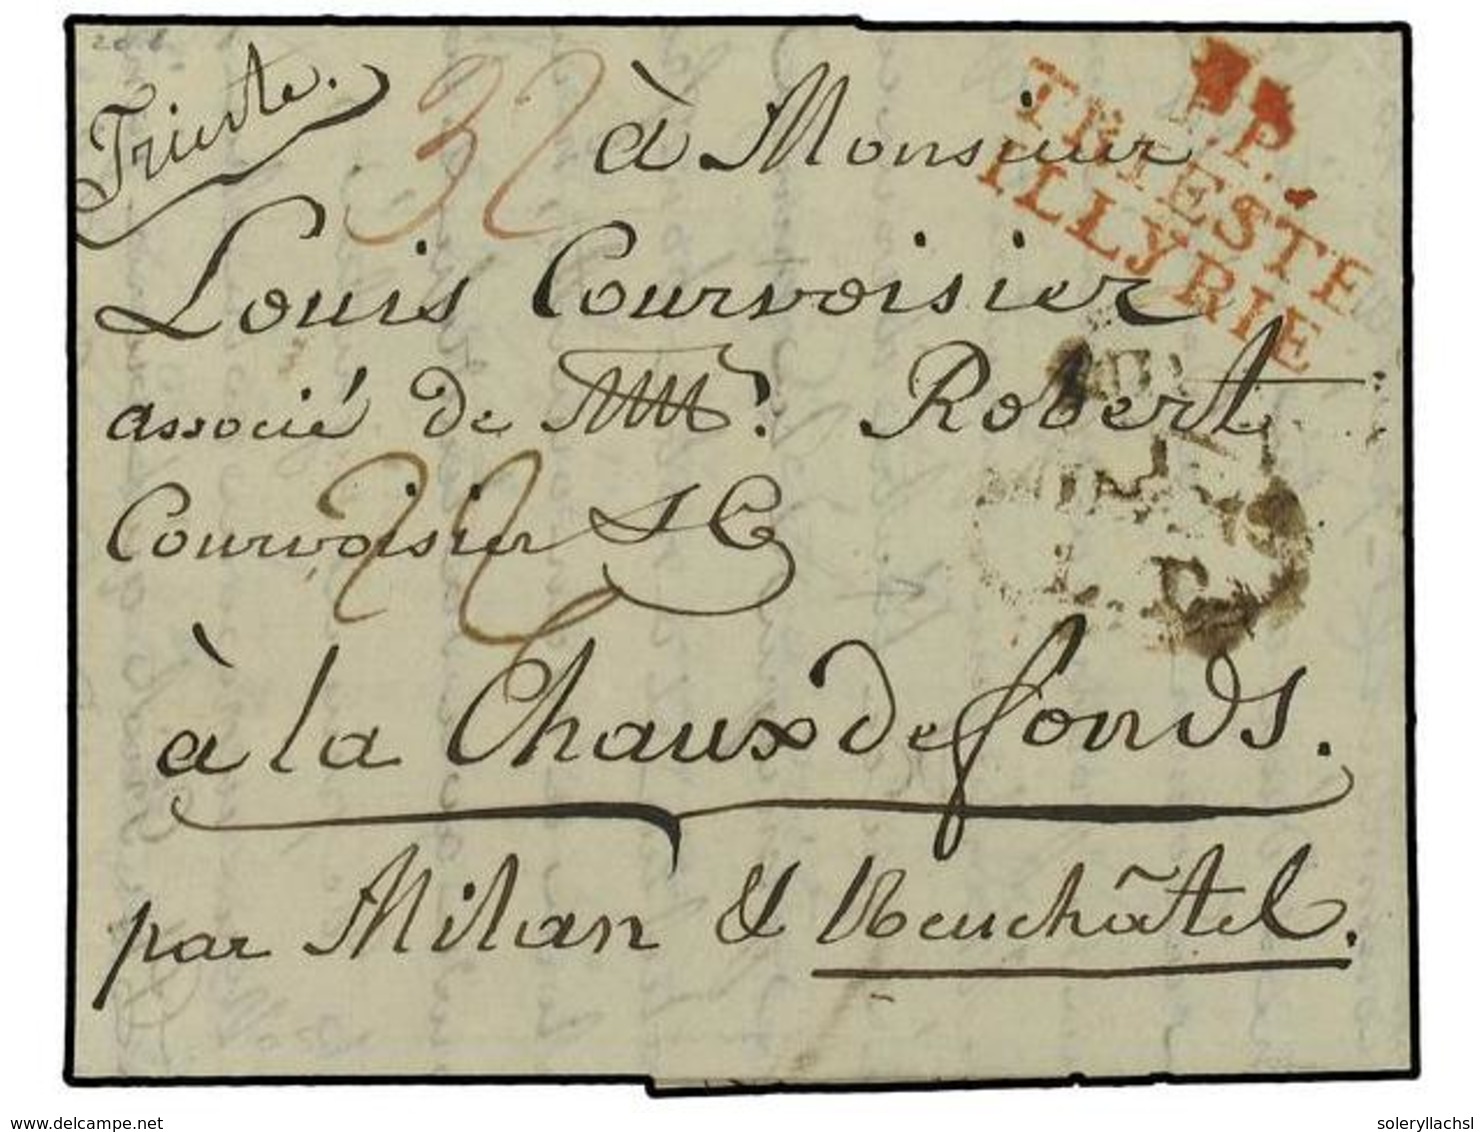 Trieste.
32
à Monsieur
P.P.
TRIESTE
ILLYRIE
Louis Courvoisier
associé de Robert
Courvoisier & C
22
à la Chaux de fonds.
par Milan & Neuchâtel.
www.delcampe.net
soleryllachsl